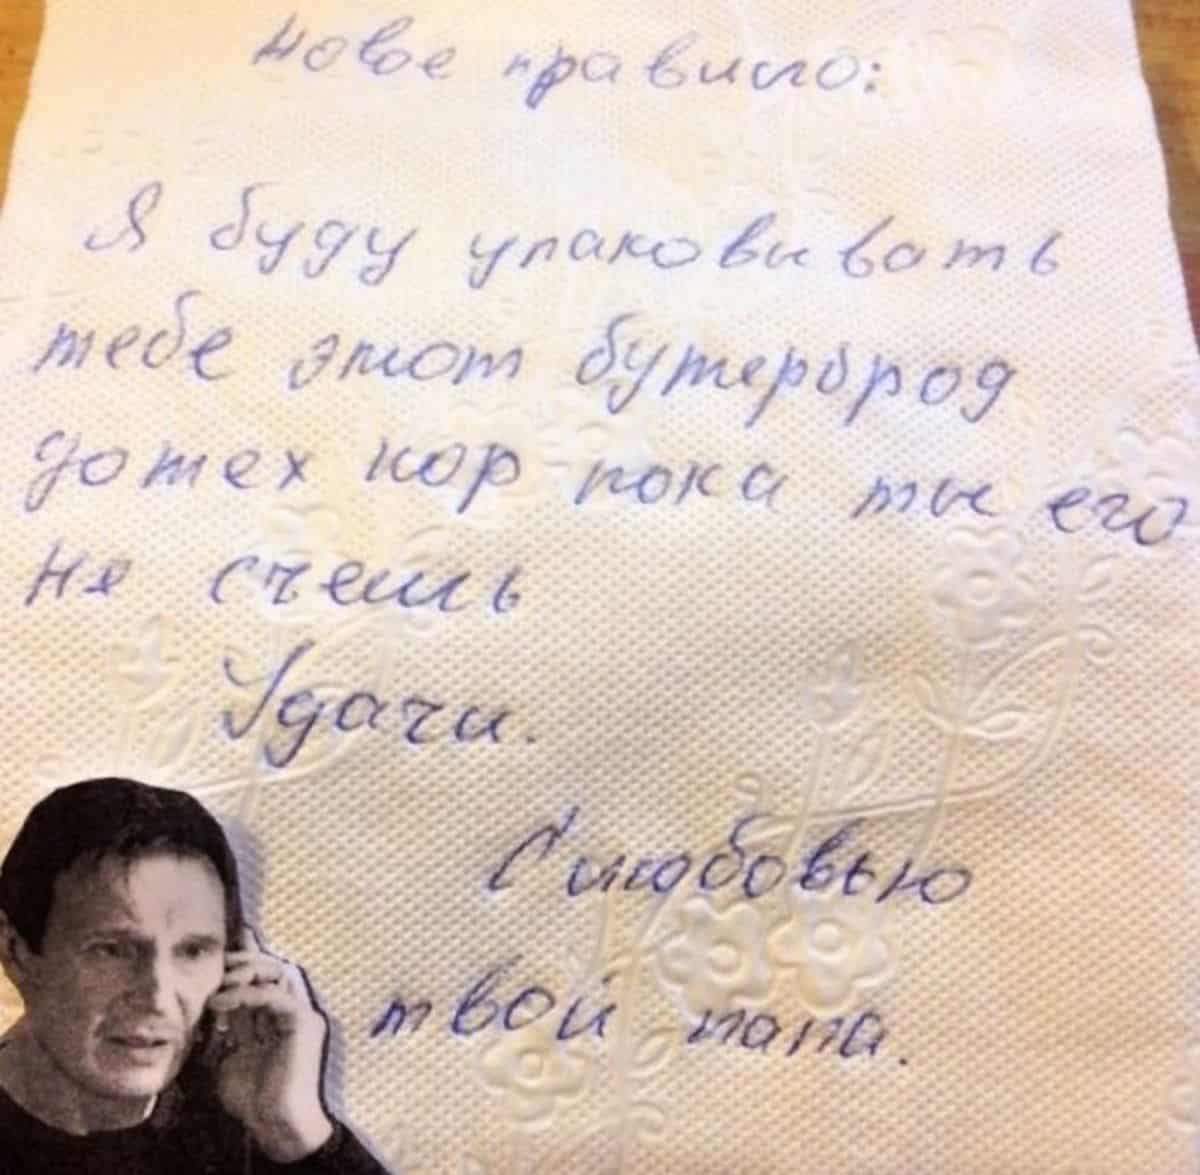 новое правило:
Я буду упаковывать
тебе этот бутерброд
до тех пор пока ты его
не счешь
Удачи.
С любовью
твой папа.